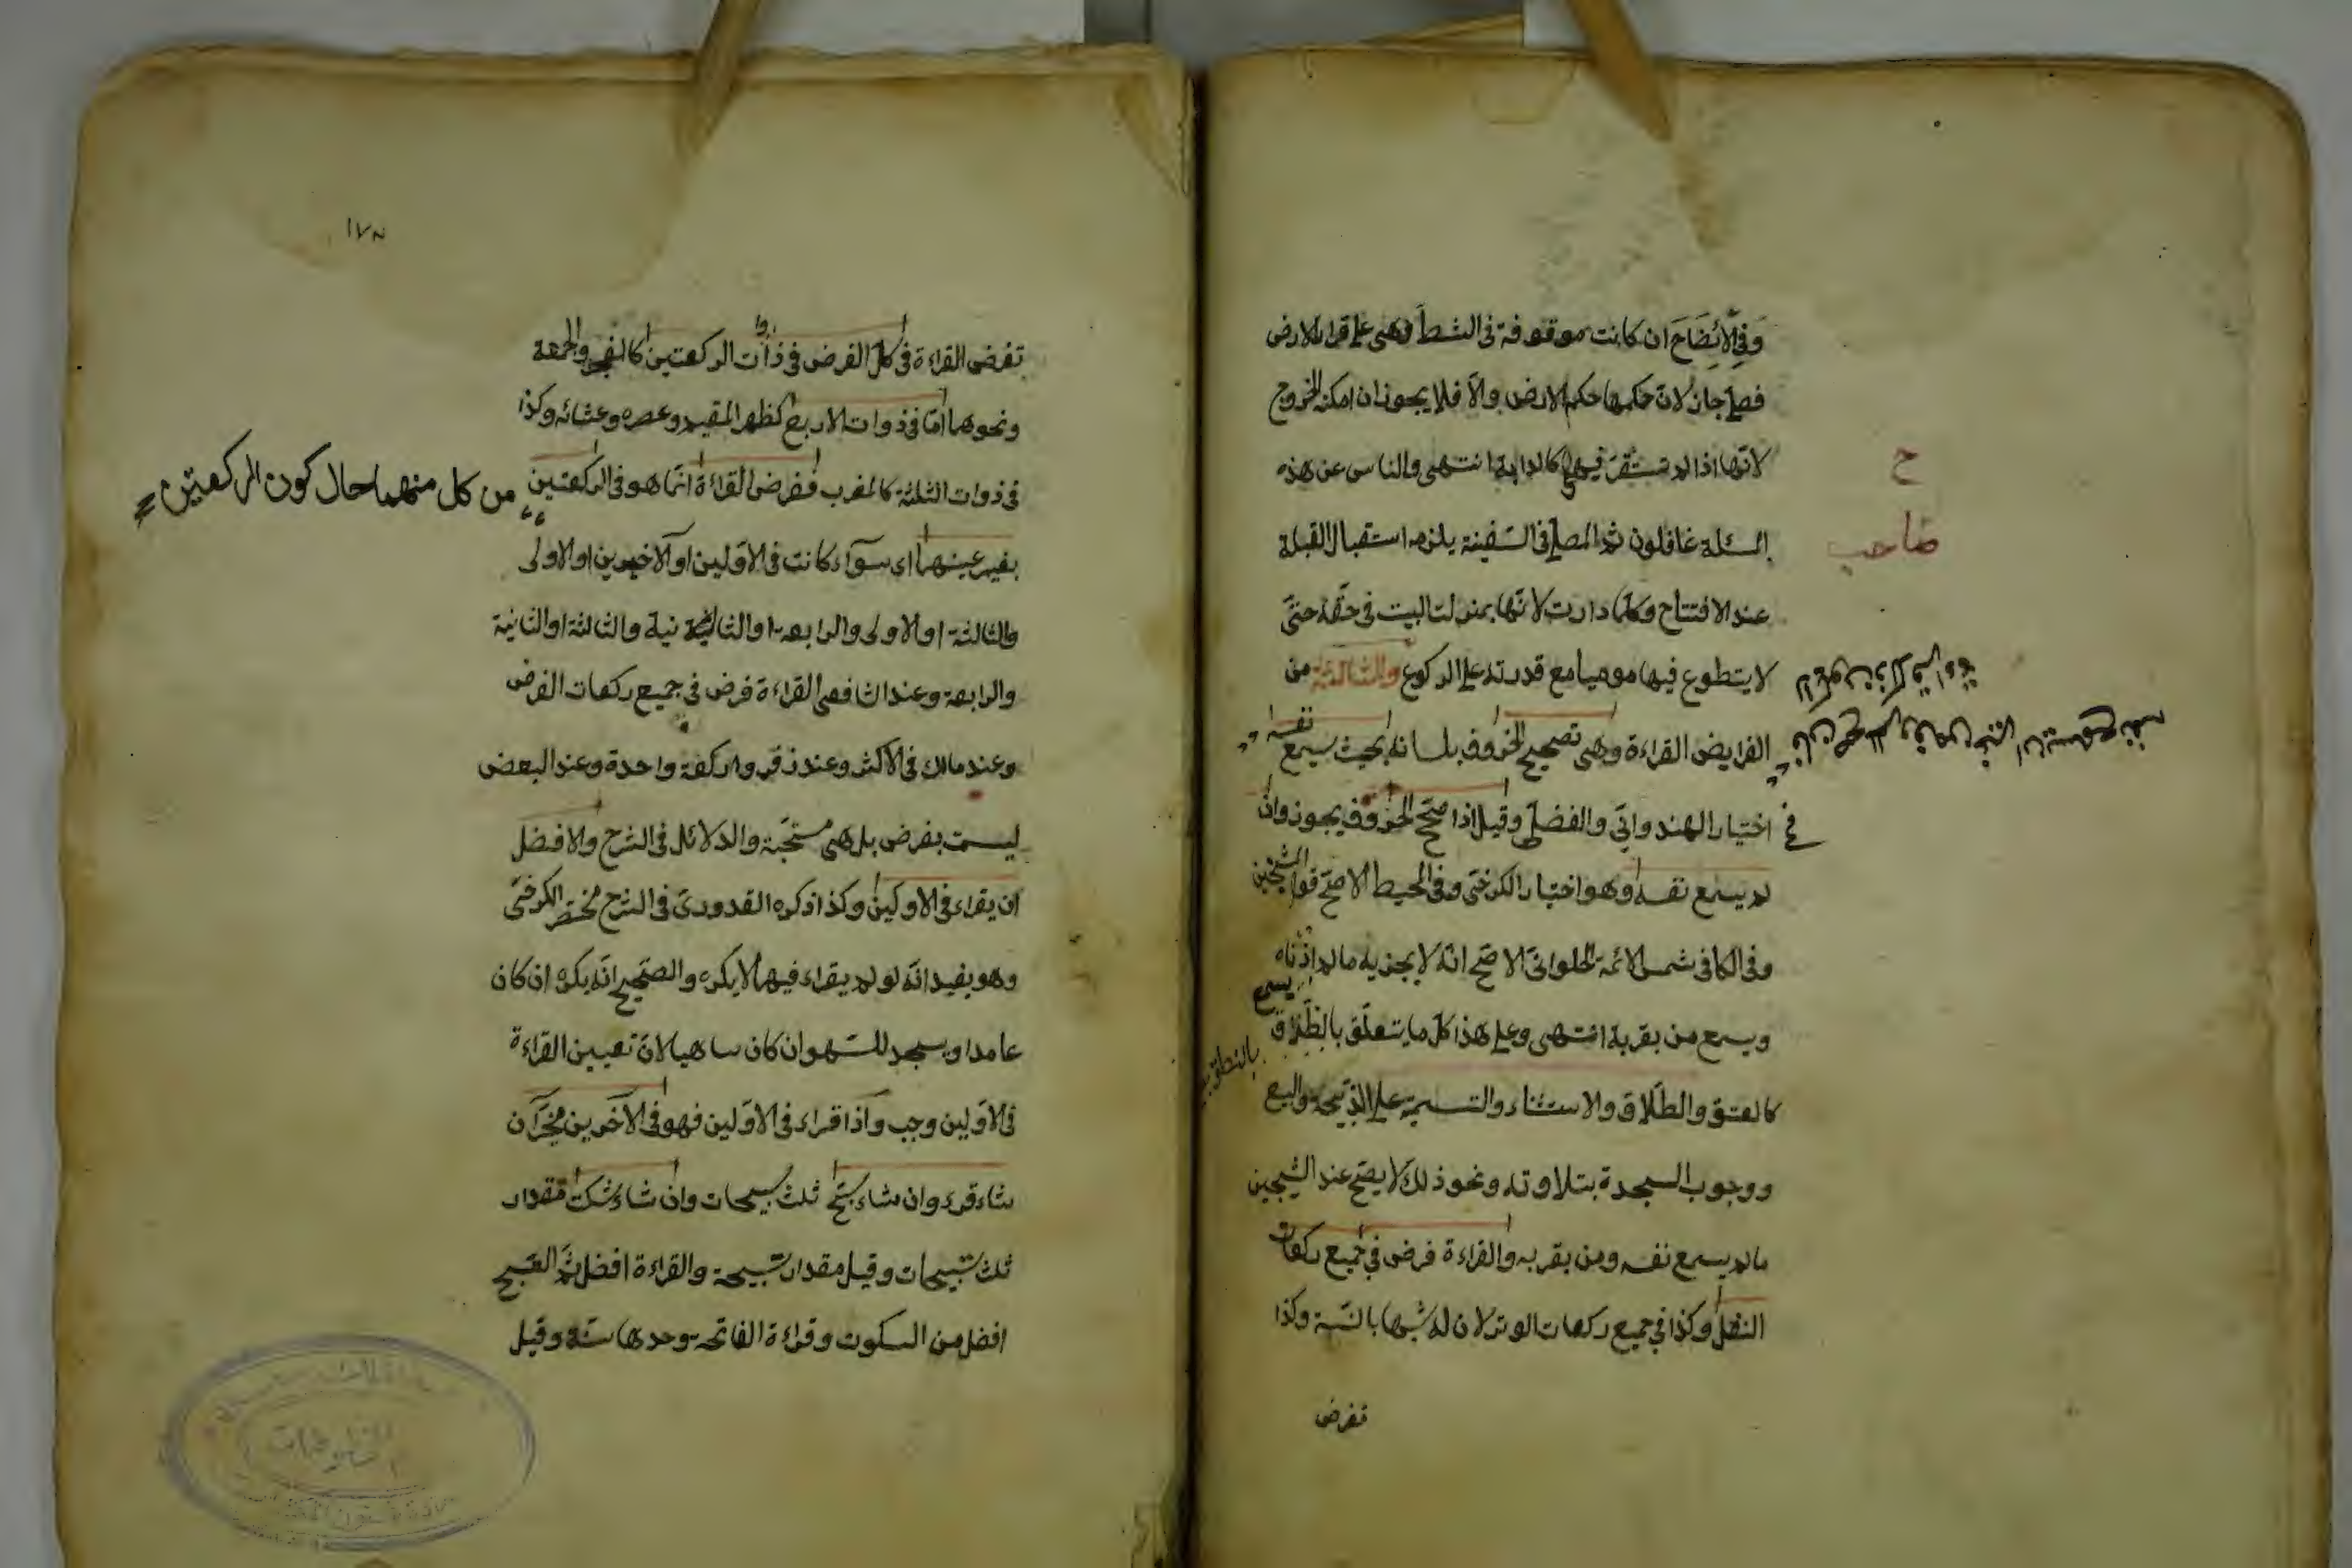 وفي الايضاح ان كانت موقوفة في الشط وهي على قرار الارض
فصلى جاز لان حكمها حكم الارض والا فلا يجوز ان امكنه الخروج
لانها اذا لم تستقر فهي كالدابة انتهى والناس عن هذه
المسئلة غافلون ثم المصلي في السفينة يلزمه استقبال القبلة
عند الافتتاح وكلما دارت لانها بمنزلت البيت في حقه حتى
لا يتطوع فيها موميا مع قدرته على الركوع والثالثة من
الفرايض القراءة وهي تصحيح الحروف بلسانه بحيث يسمع نفسه
في اختيار الهندواني والفضلي وقيل اذا صحح الحروف يجوز وان
لم يسمع نفسه وهو اختيار الكرخي وفي المحيط الاصح قول الشيخين
وفي الكافي شمس الائمة الحلواني الاصح انه لا يجزيه ما لم يسمع اذناه
ويسمع من بقربه انتهى وعلى هذا كل ما يتعلق بالطلاق
بالنطق
كالعتق والطلاق والاستثناء والتسمية على الذبيحة والبيع
ووجوب السجدة بتلاوته ونحو ذلك لا يصح عند الشيخين
ما لم يسمع نفسه ومن بقربه والقراءة فرض في جميع ركعات
النفل وكذا في جميع ركعات الوتر لان له شبها بالسنة وكذا
تفرض
ح
صاحب
١٧٨
تفرض القراءة في كل الفرض في ذوات الركعتين كالفجر والجمعة
ونحوهما اما في ذوات الاربع كظهر المقيم وعصره وعشائه وكذا
في ذوات الثلثة كالمغرب ففرض القراءة انما هو في الركعتين
من كل منهما حال كون الركعتين
بغير عينهما اى سوآء كانت في الاولين او الاخيرين او الاولى
والثالثة او الاولى والرابعة او الثانية والثالثة او الثانية
والرابعة وعند الشافعي القراءة فرض في جميع ركعات الفرض
وعند مالك في الاكثر وعند زفر في ركعة واحدة وعند البعض
ليست بفرض بل هي مستحبة والدلائل في الشرح والافضل
ان يقراء في الاولين وكذا ذكره القدوري في الشرح مختصر الكرخي
وهو يفيد انه لو لم يقراء فيهما لا يكره والصحيح انه يكره ان كان
عامدا ويسجد للسهو ان كان ساهيا لان تعيين القراءة
في الاولين وجب واذا قراء في الاولين فهو في الآخرين مخير ان
شاء قرء وان شاء سبح ثلث تسبيحات وان شاء سكت مقدار
ثلث تسبيحات وقيل مقدار تسبيحة والقراءة افضل ثم التسبيح
افضل من السكوت وقراءة الفاتحة وحدها سنة وقيل